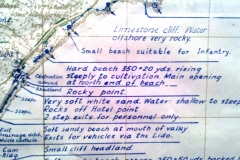 Limestone cliff. Water
offshore very rocky.
Small beach suitable for Infantry.
Hard beach 350×20 yds rising
steeply to cultivation. Main opening
at north end of beach
Obstruction
Rocky point.
Very soft white sand. Water: shallow to steep
Rocks off Hotel point
2 steps exits for personnel only.
Steps
Exit
Drainage ditch
Soft sandy beach at mouth of valley
Exits for vehicles via the Lido.
Cam
Bldg
Small cliff headland.